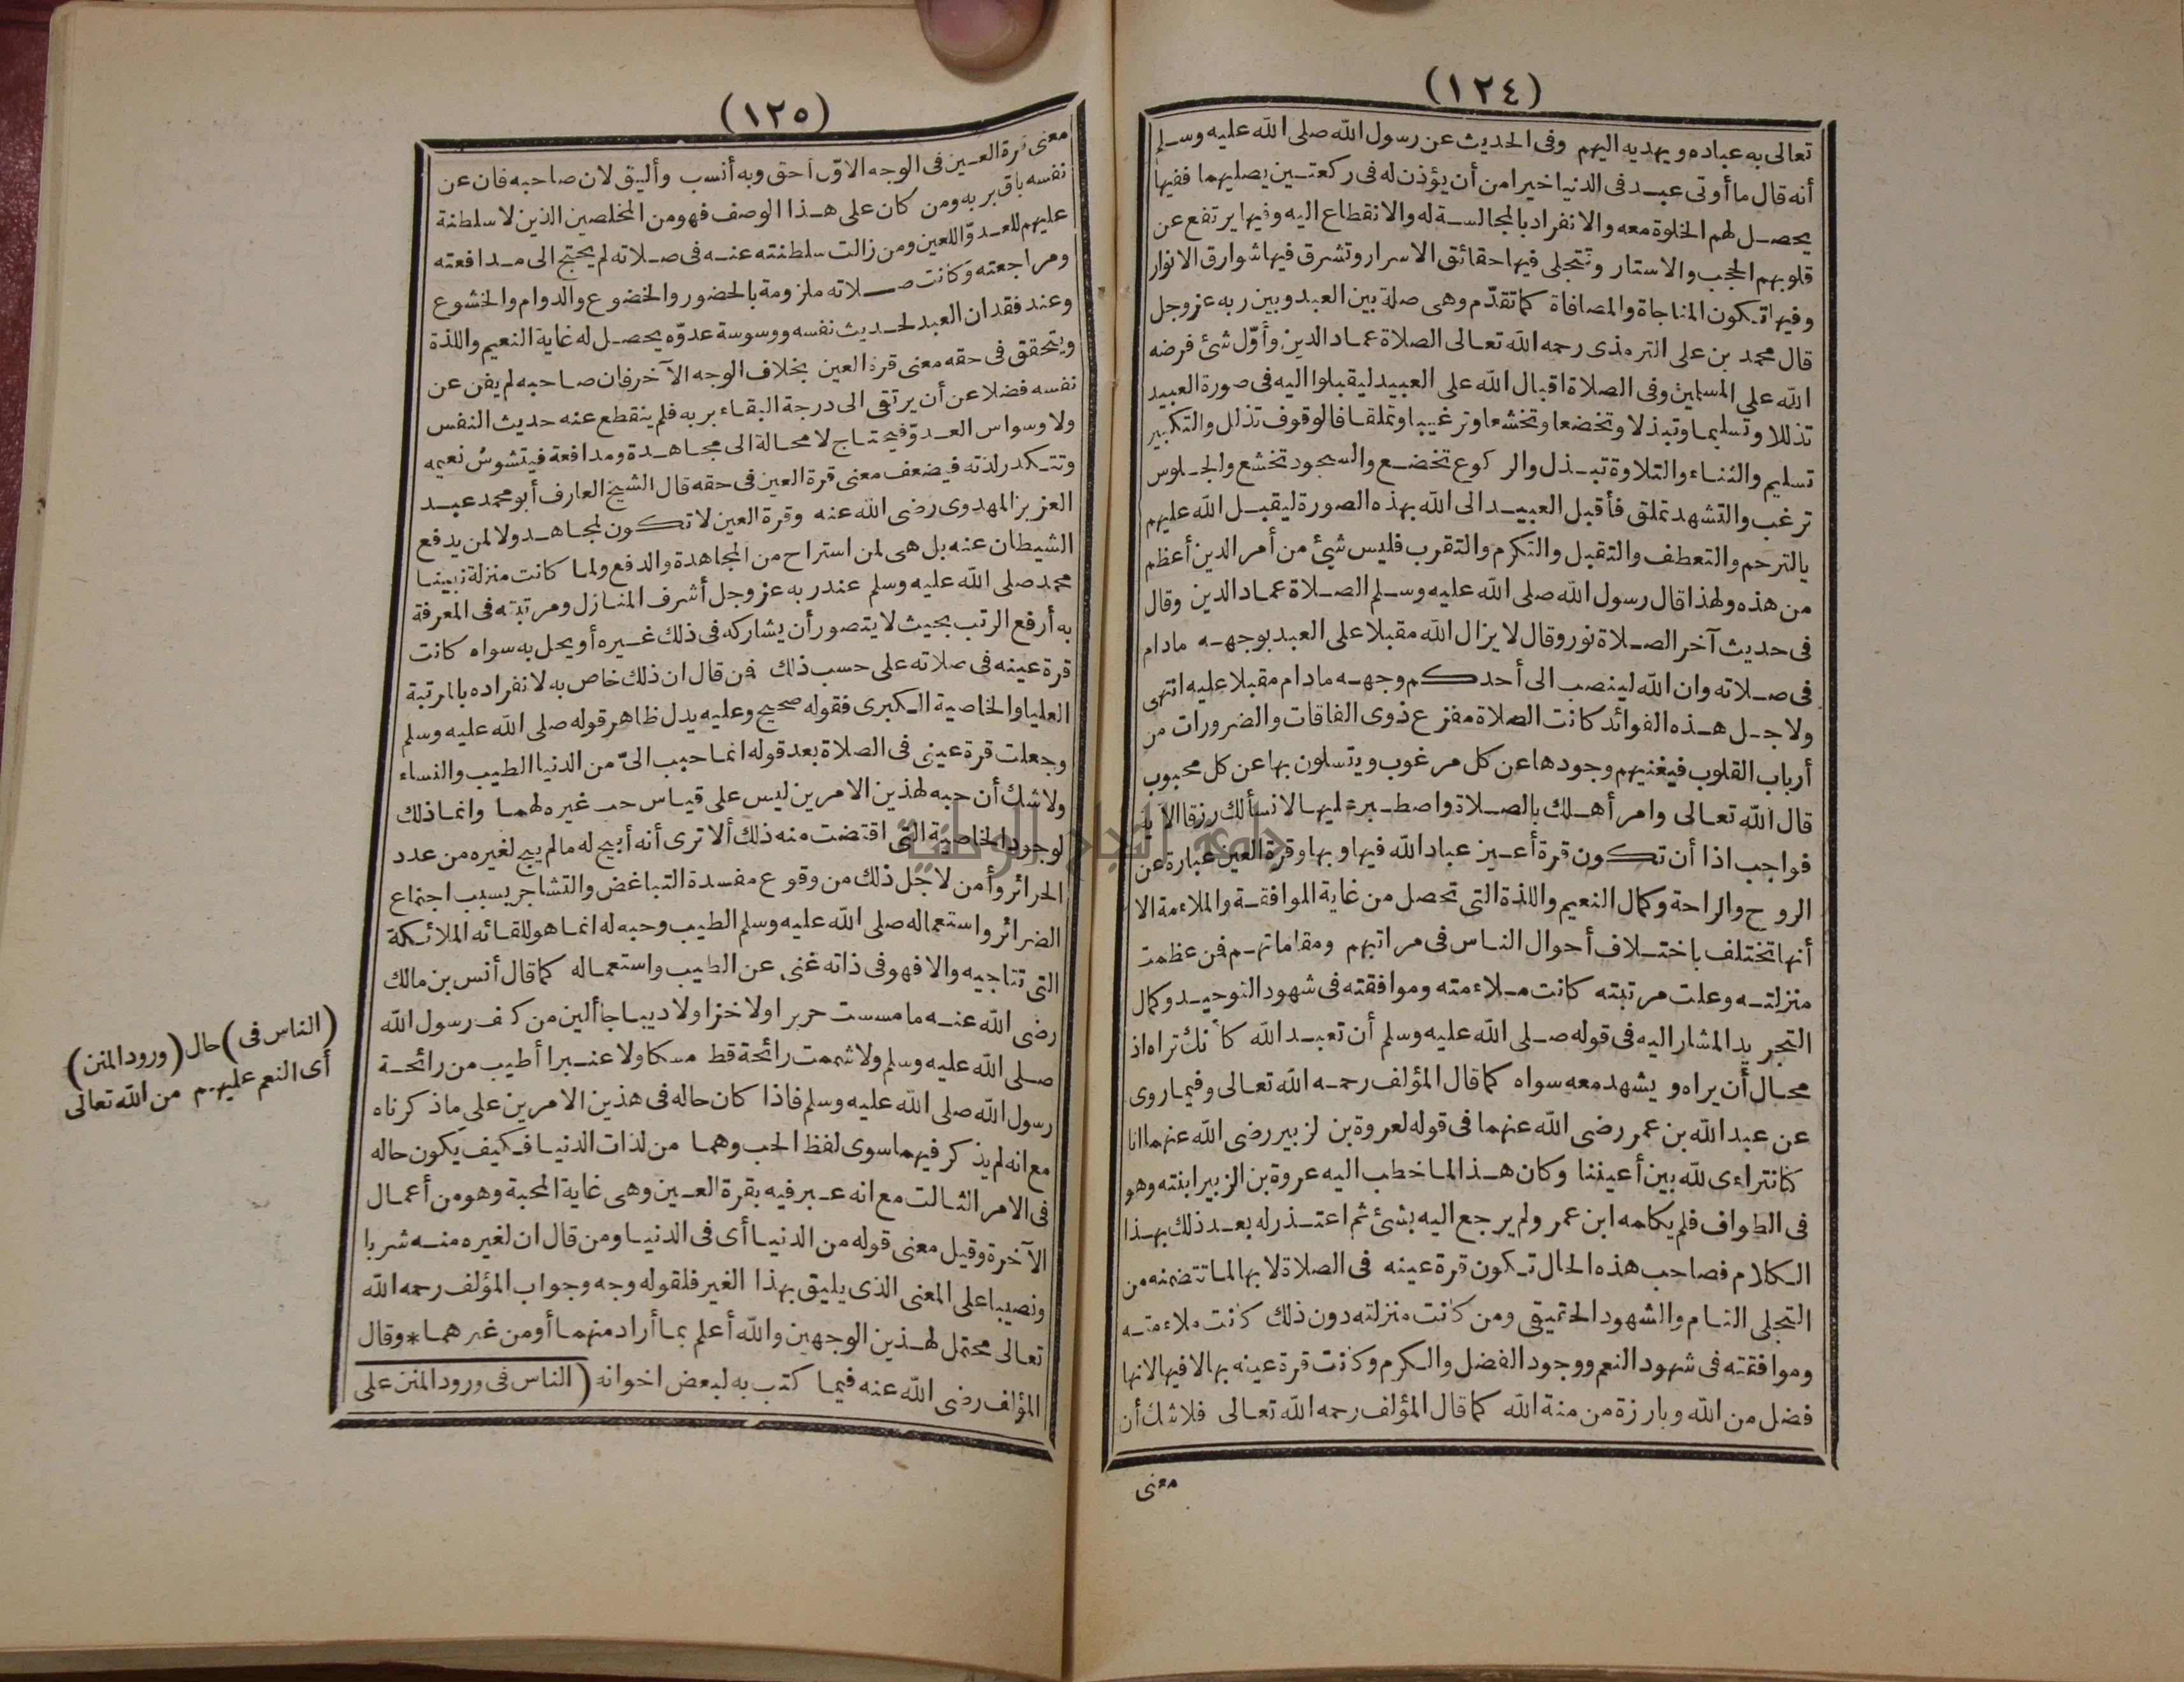 (١٢٤)
تعالى به عباده ويهديه اليهم وفى الحديث عن رسول الله صلى الله عليه وسلم
أنه قال ما أوتى عبد فى الدنيا خيرا من أن يؤذن له فى ركعتين يصليهما ففيها
يحصل لهم الخلوة معه والانفراد بالمجالسة له والانقطاع اليه وفيها يرتفع عن
قلوبهم الحجب والاستار وتتجلى فيها حقائق الاسرار وتشرق فيها شوارق الانوار
وفيها تكون المناجاة والمصافاة كما تقدّم وهى صلة بين العبد وبين ربه عز وجل
قال محمد بن على الترمذى رحمه الله تعالى الصلاة عماد الدين وأوّل شئ فرضه
الله على المسلمين وفى الصلاة اقبال الله على العبيد ليقبلوا اليه فى صورة العبيد
تذللا وتسليما وتبذلا وتخضعا وتخشعا وترغيبا وتملقا فالوقوف تذلل والتكبير
تسليم والثناء والتلاوة تبذل والركوع تخضع والسجود تخشع والجلوس
ترغب والتشهد تملق فأقبل العبيد الى الله بهذه الصورة ليقبل الله عليهم
بالترحم والتعطف والتقبل والتكرم والتقرب فليس شئ من أمر الدين أعظم
من هذه ولهذا قال رسول الله صلى الله عليه وسلم الصلاة عماد الدين وقال
فى حديث آخر الصلاة نور وقال لا يزال الله مقبلا على العبد بوجهه مادام
فى صلاته وان الله لينصب الى أحدكم وجهه مادام مقبلا عليه انتهى
ولاجل هذه الفوائد كانت الصلاة مفزع ذوى الفاقات والضرورات من
أرباب القلوب فيغنيهم وجودها عن كل مرغوب ويتسلون بها عن كل محبوب
قال الله تعالى وامر أهلك بالصلاة واصطبر عليها لا نسألك رزقا الآية
فواجب اذا أن تكون قرة أعين عباد الله فيها وبها وقرة العين عبارة عن
الروح والراحة وكمال النعيم واللذة التى تحصل من غاية الموافقة والملاءمة الا
أنها تختلف باختلاف أحوال الناس فى مراتبهم ومقاماتهم فمن عظمت
منزلته وعلت مرتبته كانت ملاءمته وموافقته فى شهود التوحيد وكمال
التجريد المشار اليه فى قوله صلى الله عليه وسلم أن تعبد الله كأنك تراه اذ
محال أن يراه ويشهد معه سواه كما قال المؤلف رحمه الله تعالى وفيما روى
عن عبد الله بن عمر رضى الله عنهما فى قوله لعروة بن لزبير رضى الله عنهما انا
كنا نتراءى لله بين أعيننا وكان هذا لما خطب اليه عروة بن الزبير ابنته وهو
فى الطواف فلم يكلمه ابن عمر ولم يرجع اليه بشئ ثم اعتذر له بعد ذلك بهذا
الكلام فصاحب هذه الحال تكون قرة عينه فى الصلاة لا بها لما تتضمنه من
التجلى التام والشهود الحقيقى ومن كانت منزلته دون ذلك كانت ملاءمته
وموافقته فى شهود النعم ووجود الفضل والكرم وكانت قرة عينه بها لا فيها لانها
فضل من الله وبارزة من منة الله كما قال المؤلف رحمه الله تعالى فلا شك أن
معنى
(١٢٥)
معنى قرة العين فى الوجه الاوّل أحق وبه أنسب وأليق لان صاحبه فان عن
نفسه باق بربه ومن كان على هذا الوصف فهو من المخلصين الذين لا سلطنة
عليهم للعدوّ اللعين ومن زالت سلطنته عنه فى صلاته لم يحتج الى مدافعته
ومراجعته وكانت صلاته ملزومة بالحضور والخضوع والدوام والخشوع
وعند فقدان العبد لحديث نفسه ووسوسة عدوّه يحصل له غاية النعيم واللذة
ويتحقق فى حقه معنى قرة العين بخلاف الوجه الآخر فان صاحبه لم يفن عن
نفسه فضلا عن أن يرتقى الى درجة البقاء بربه فلم ينقطع عنه حديث النفس
ولا وسواس العدوّ فيحتاج لا محالة الى مجاهدة ومدافعة فيتشوش نعيمه
وتتكدر لذته فيضعف معنى قرة العين فى حقه قال الشيخ العارف أبو محمد عبد
العزيز المهدوى رضى الله عنه وقرة العين لا تكون لمجاهد ولا لمن يدفع
الشيطان عنه بل هى لمن استراح من المجاهدة والدفع ولما كانت منزلة نبينا
محمد صلى الله عليه وسلم عند ربه عز وجل أشرف المنازل ومرتبته فى المعرفة
به أرفع الرتب بحيث لا يتصور أن يشاركه فى ذلك غيره أو يحل به سواه كانت
قرة عينه فى صلاته على حسب ذلك فمن قال ان ذلك خاص به لانفراده بالمرتبة
العليا والخاصية الكبرى فقوله صحيح وعليه يدل ظاهر قوله صلى الله عليه وسلم
وجعلت قرة عينى فى الصلاة بعد قوله انما حبب الىّ من الدنيا الطيب والنساء
ولا شك أن حبه لهذين الامرين ليس على قياس حب غيره لهما وانما ذلك
لوجود الخاصية التى اقتضت منه ذلك ألا ترى أنه أبيح له ما لم يبح لغيره من عدد
الحرائر وأمن لاجل ذلك من وقوع مفسدة التباغض والتشاجر بسبب اجتماع
الضرائر واستعماله صلى الله عليه وسلم الطيب وحبه له انما هو للقائه الملائكة
التى تناجيه والا فهو فى ذاته غنى عن الطيب واستعماله كما قال أنس بن مالك
رضى الله عنه ما مسست حريرا ولا خزا ولا ديباجا ألين من كف رسول الله
صلى الله عليه وسلم ولا شممت رائحة قط مسكا ولا عنبرا أطيب من رائحة
رسول الله صلى الله عليه وسلم فاذا كان حاله فى هذين الامرين على ما ذكرناه
مع انه لم يذكر فيهما سوى لفظ الحب وهما من لذات الدنيا فكيف يكون حاله
فى الامر الثالث مع انه عبر فيه بقرة العين وهى غاية المحبة وهو من أعمال
الآخرة وقيل معنى قوله من الدنيا أى فى الدنيا ومن قال ان لغيره منه شربا
ونصيبا على المعنى الذى يليق بهذا الغير فلقوله وجه وجواب المؤلف رحمه الله
تعالى محتمل لهذين الوجهين والله أعلم بما أراد منهما أو من غيرهما * وقال
المؤلف رضى الله عنه فيما كتب به لبعض اخوانه (الناس فى ورود المنن على
(الناس فى) حال (ورود المنن)
أى النعم عليهم من الله تعالى
جامعة النجاح الوطنية